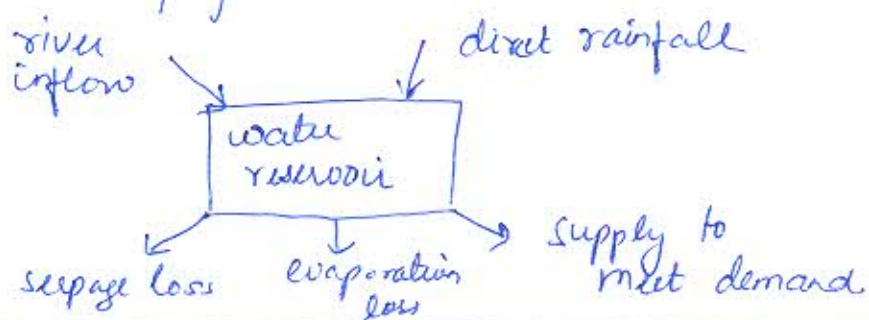 river
inflow
direct rainfall
water
reservoir
seepage loss
evaporation
loss
supply to
meet demand